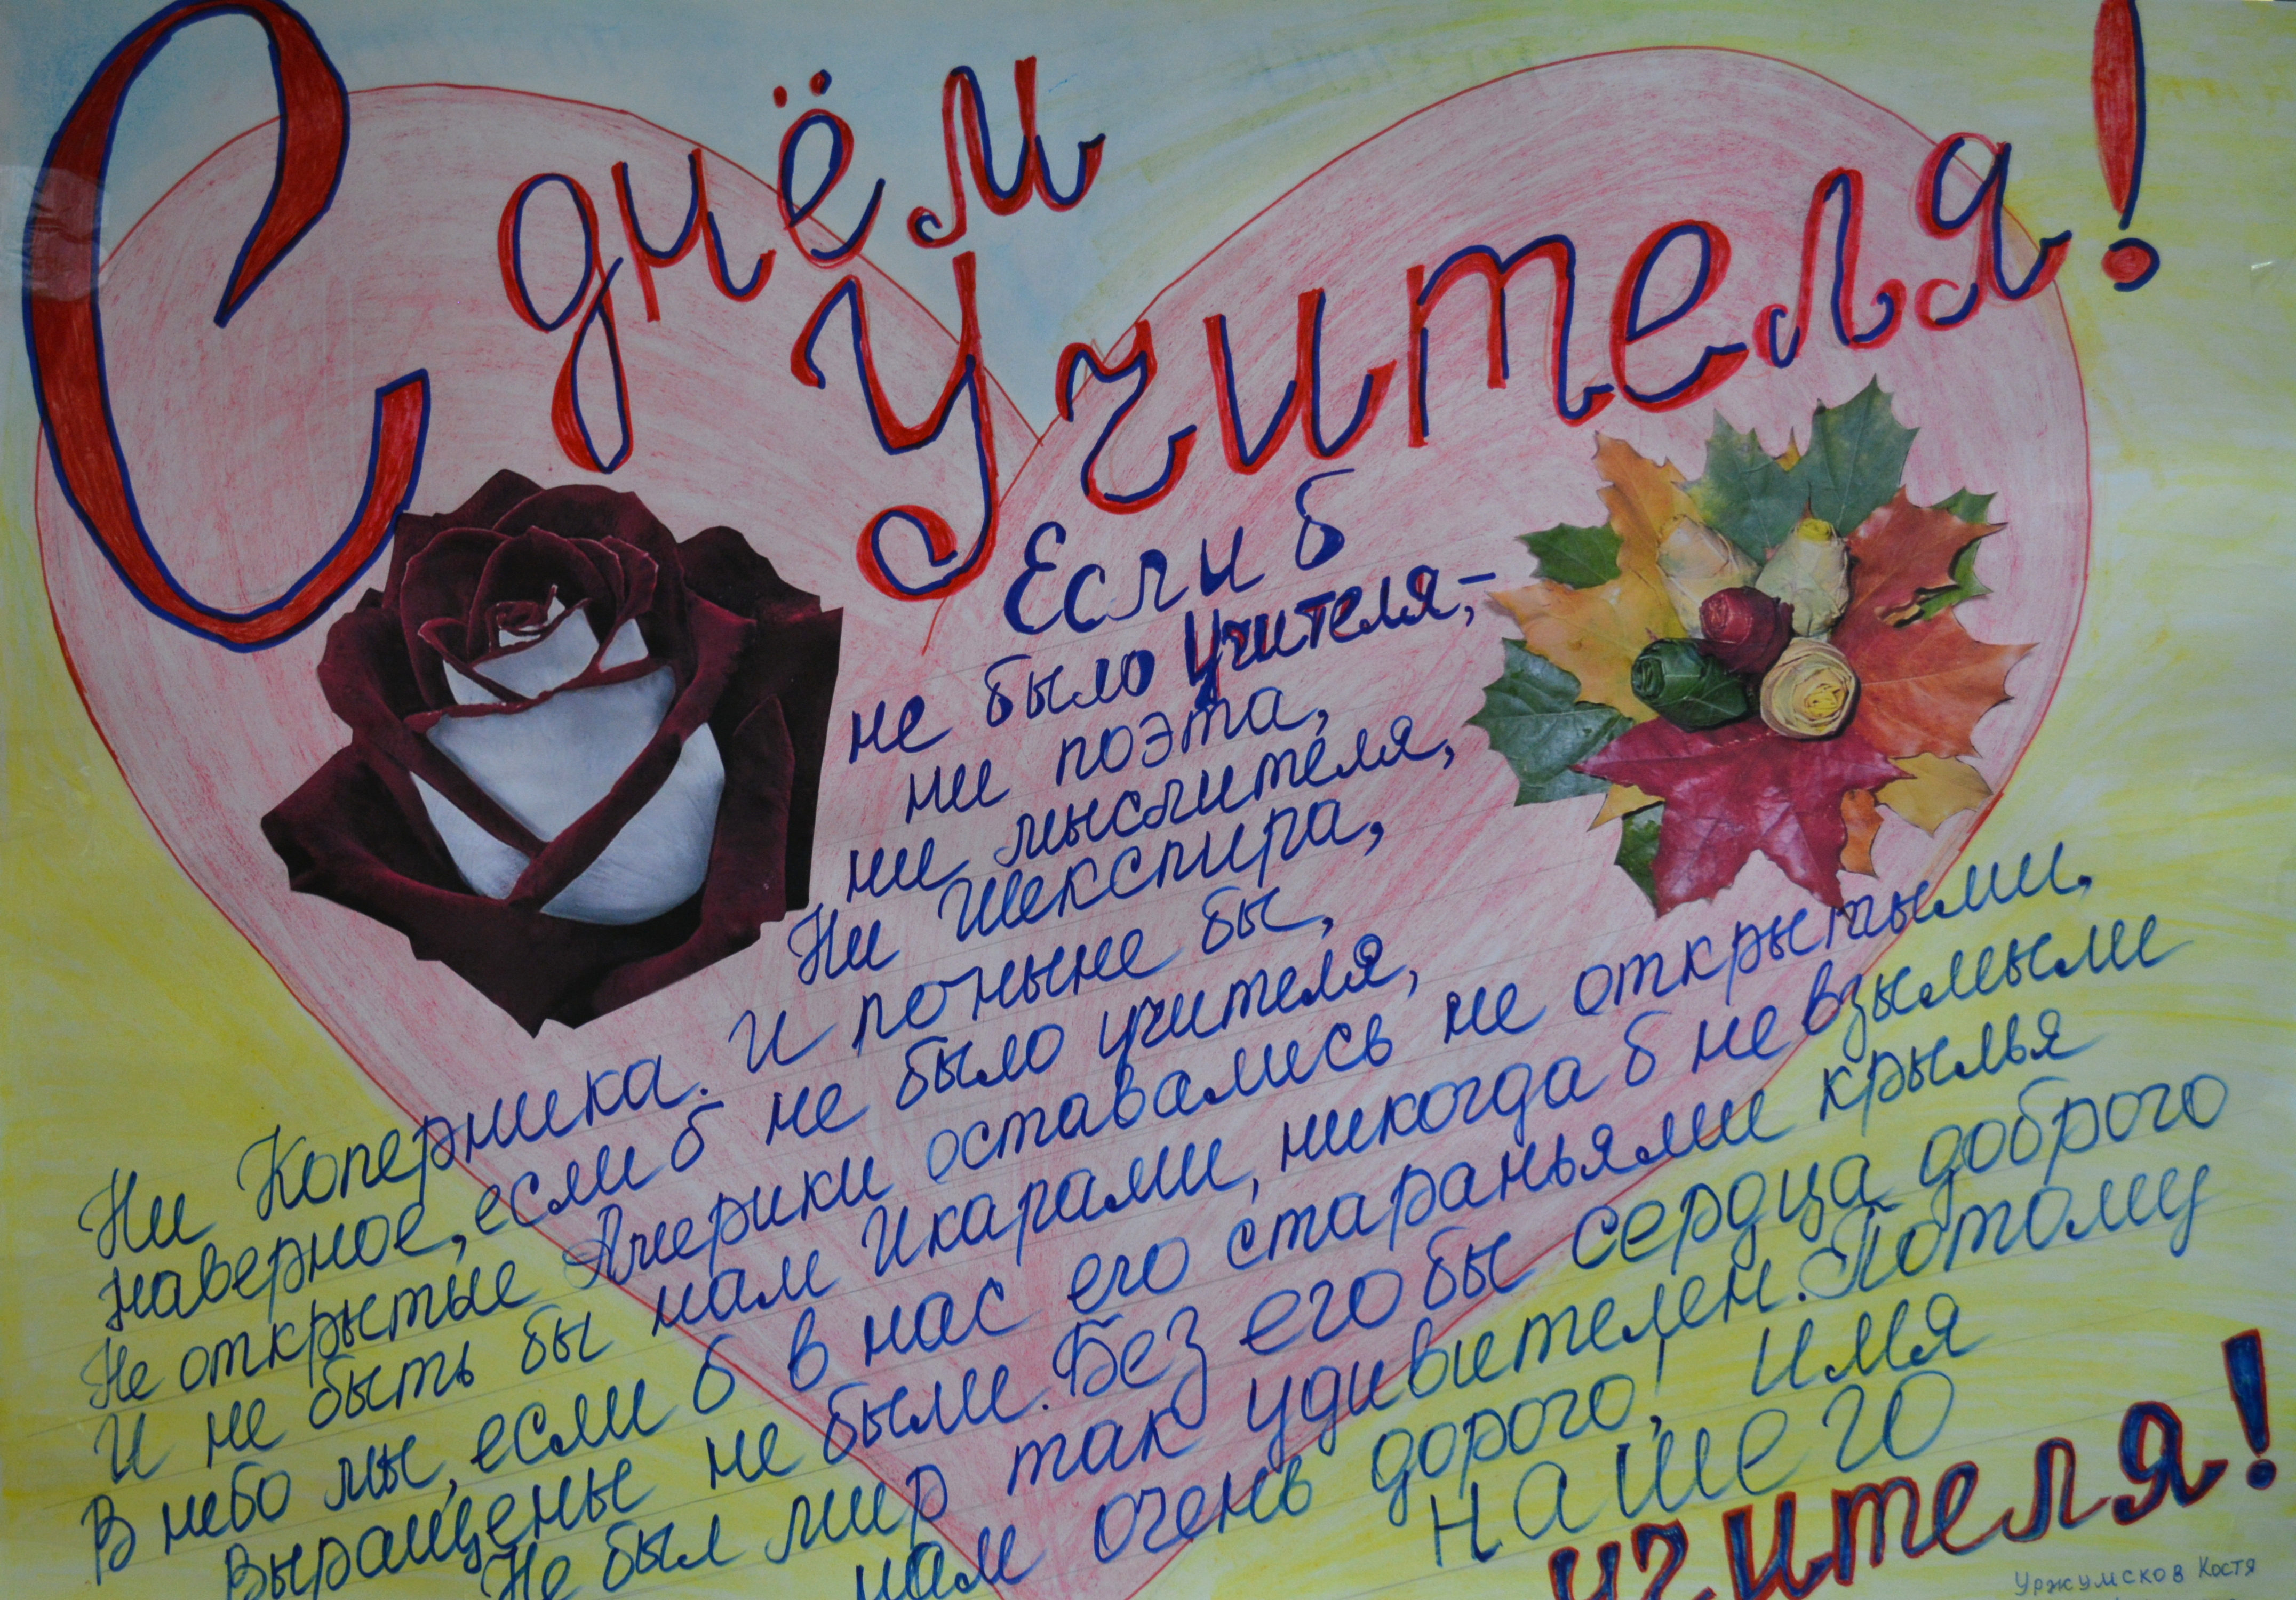 С днём
Учителя!
Если б
не было Учителя,-
ни поэта,
ни мыслителя,
Ни Шекспира,
Ни Коперника. И поныне бы,
наверное, если б не было учителя,
Не открытые Америки оставались не открытыми,
И не быть бы нам Икарами, никогда б не взымыли
В небо мы, если б в нас его стараньями крылья
Выращены не были. Без его бы сердца доброго
Не был мир так удивителен. Потому
нам очень дорого! имя
нашего
учителя!
Уржумсков Костя